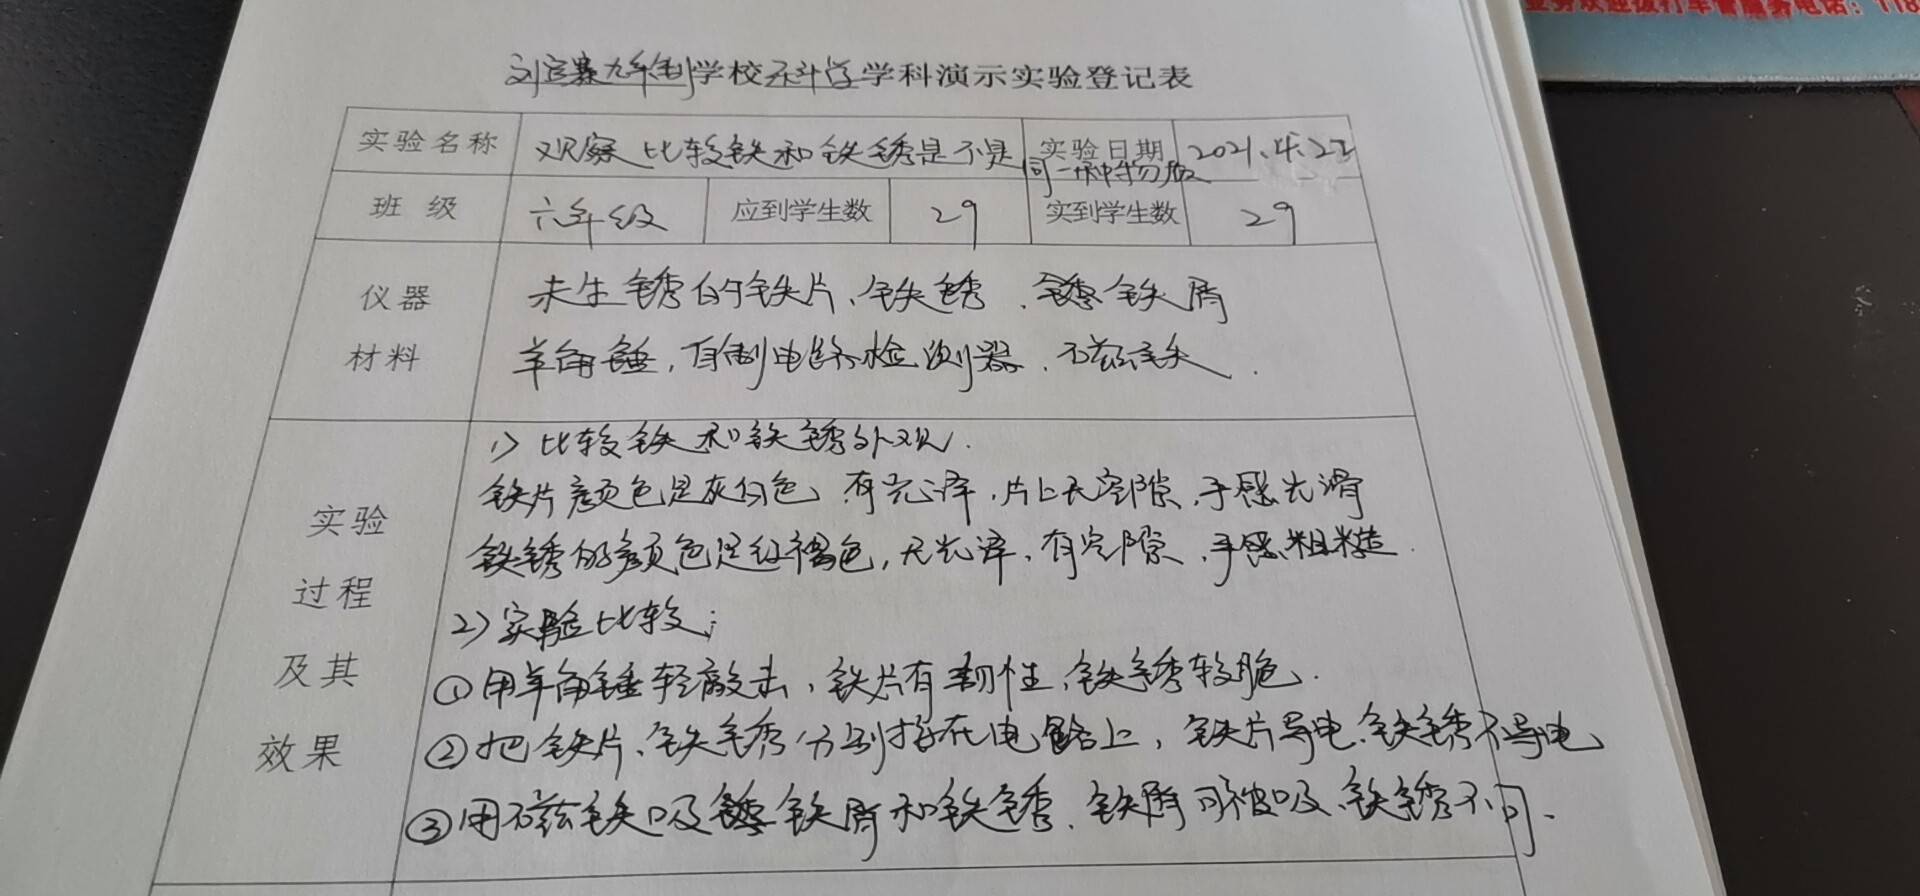 业务欢迎拨打车管服务电话：118
刘官寨九年制学校科学学科演示实验登记表
实验名称 观察比较铁和铁锈是不是同一种物质 实验日期 2021.4.22
班级 六年级 应到学生数 29 实到学生数 29
仪器材料 未生锈的铁片、铁锈、铁屑
羊角锤，自制电路检测器、磁铁.
实验过程及其效果
1) 比较铁和铁锈外观.
铁片颜色是灰白色 有光泽，片上无空隙，手感光滑
铁锈的颜色是红褐色，无光泽，有空隙，手感粗糙.
2) 实验比较；
①用羊角锤轻敲击，铁片有韧性，铁锈较脆.
②把铁片、铁锈分别接在电路上，铁片导电，铁锈不导电
③用磁铁吸铁屑和铁锈，铁屑可被吸，铁锈不可.